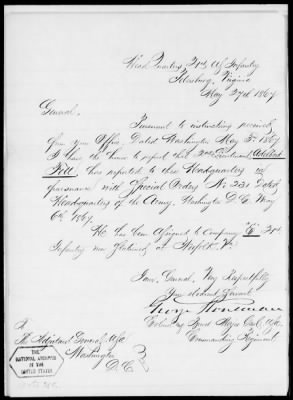 Head Quarters, 21st US Infantry
Petersburg, Virginia
May 27th 1867
General.
Pursuant to instructions received
from your Office, Dated Washington May 8th 1867
I have the honor to report that 2nd Lieutenant Adelbert
has reported to these Headquarters in
pursuance with Special Orders No 231 Dated
Headquarters of the Army, Washington D.C. May
6th 1867.
He has been Assigned to Company "E" 21st
Infantry now Stationed at Norfolk Va
I am, General, Very Respectfully
Your obedient Servant
George Stoneman
Colonel 21st Infty Brevet Major Genl. USA
Commanding Regiment
To
The Adjutant General, USA
Washington
D.C.
THE
NATIONAL ARCHIVES
OF THE
UNITED STATES